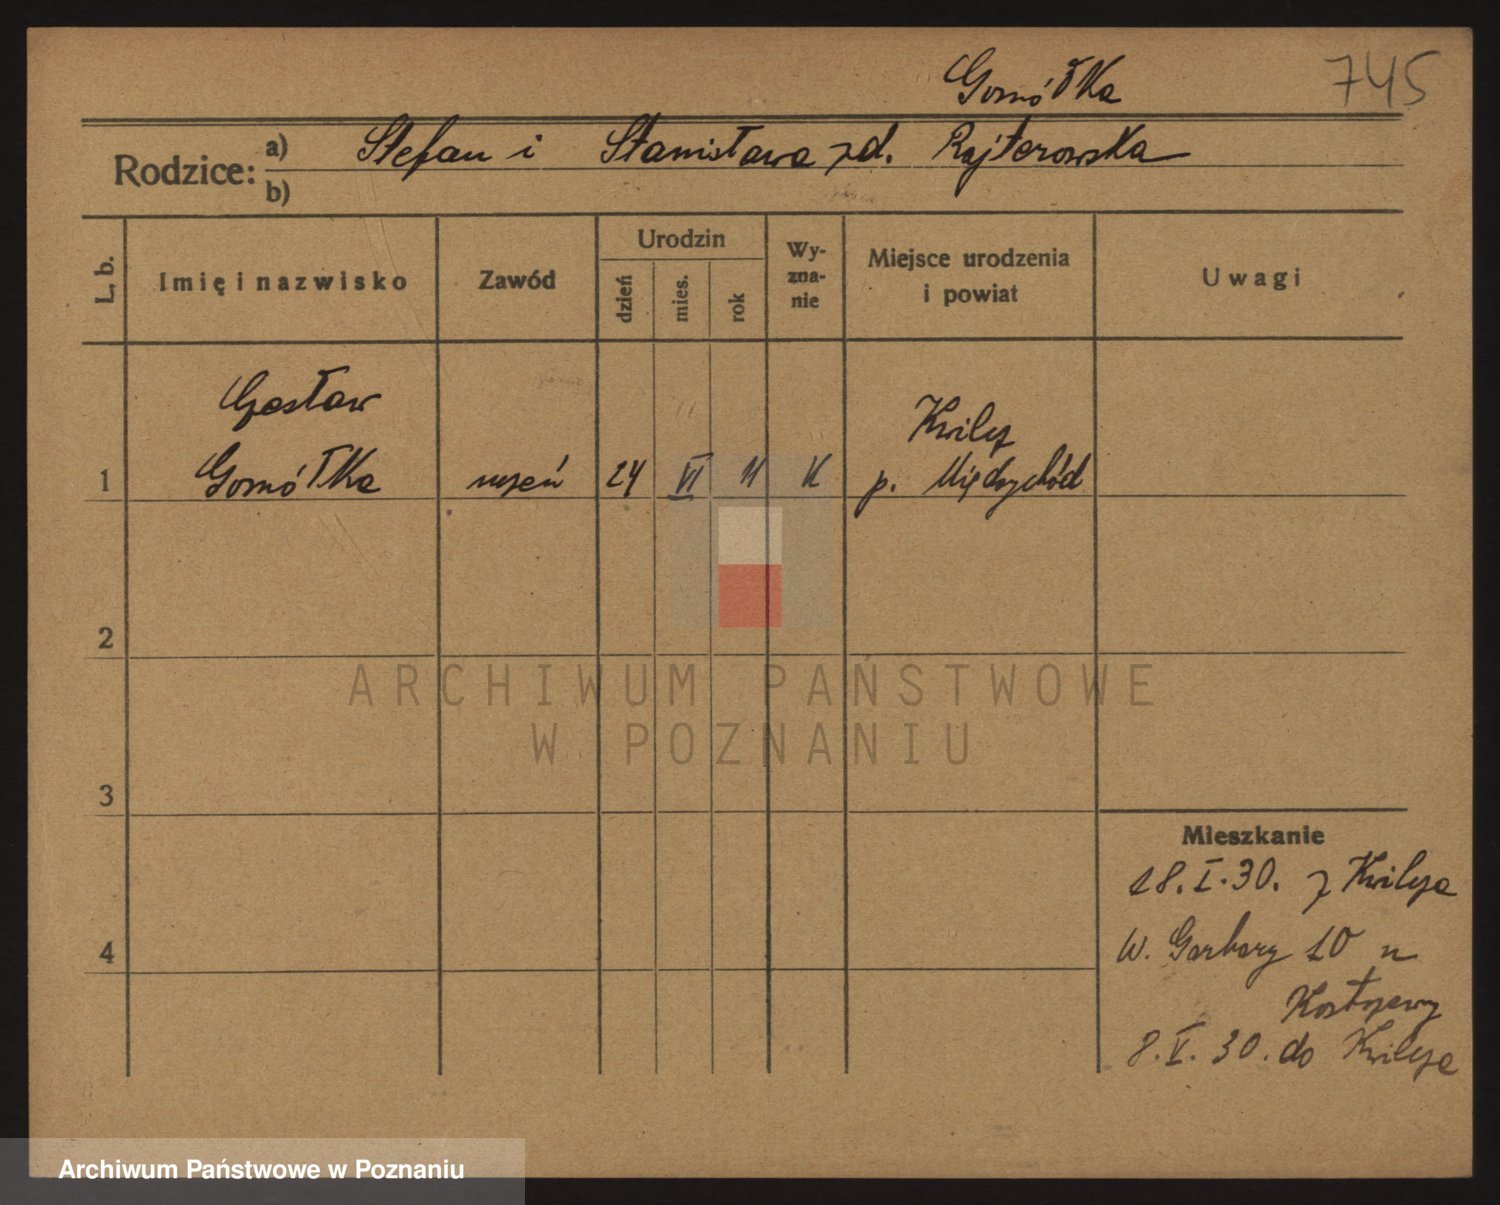 Gomółka 745
Rodzice: a) Stefan i Stanisława zd. Rajterowska
b)
L. b. Imię i nazwisko Zawód Urodzin dzień mies. rok Wyznanie Miejsce urodzenia i powiat Uwagi
Czesław
Kwilcz
1 Gomółka uczeń 24 VI 11 K p. Międzychód
2
ARCHIWUM PAŃSTWOWE
W POZNANIU
3
Mieszkanie
18.I.30. z Kwilcza
4 W. Garbary 10 u
8.V.30. do Kwilcza
Archiwum Państwowe w Poznaniu